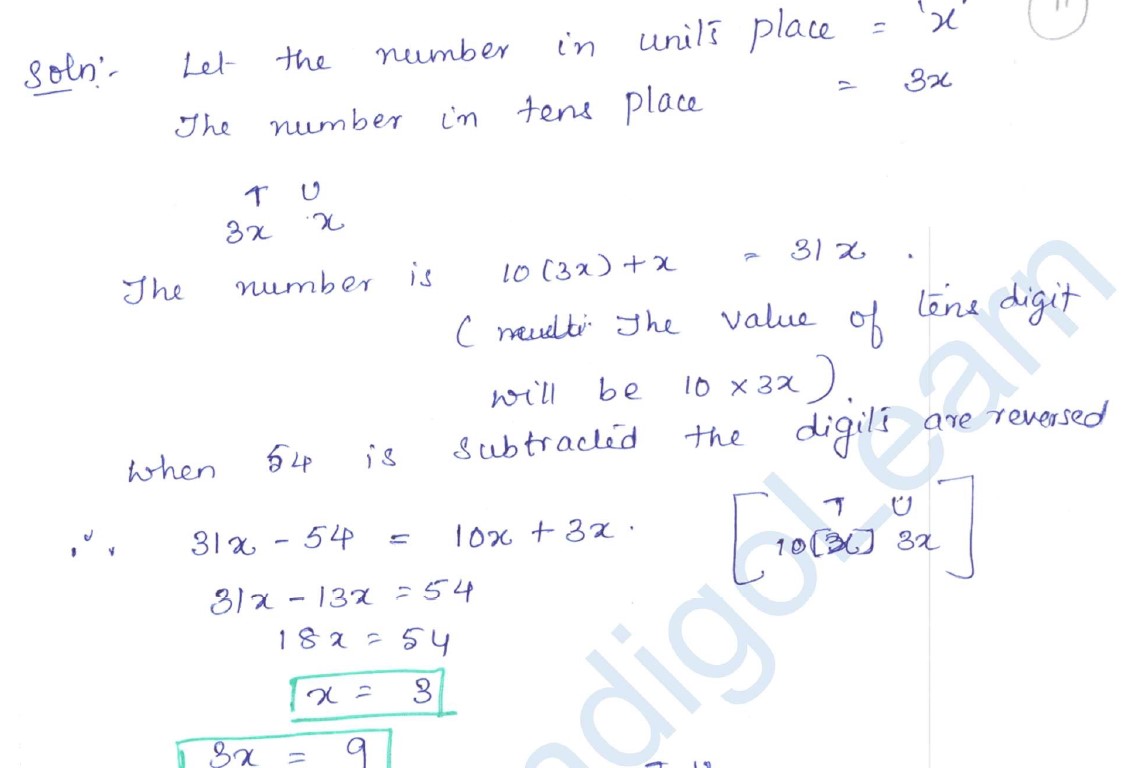 Soln:- Let the number in units place = 'x'
The number in tens place = 3x
T U
3x x
The number is 10(3x) + x = 31x.
( The value of tens digit
will be 10 × 3x).
When 54 is subtracted the digits are reversed
∴ 31x - 54 = 10x + 3x.
[ T U
10[x] 3x ]
31x - 13x = 54
18x = 54
x = 3
3x = 9
indigoLearn